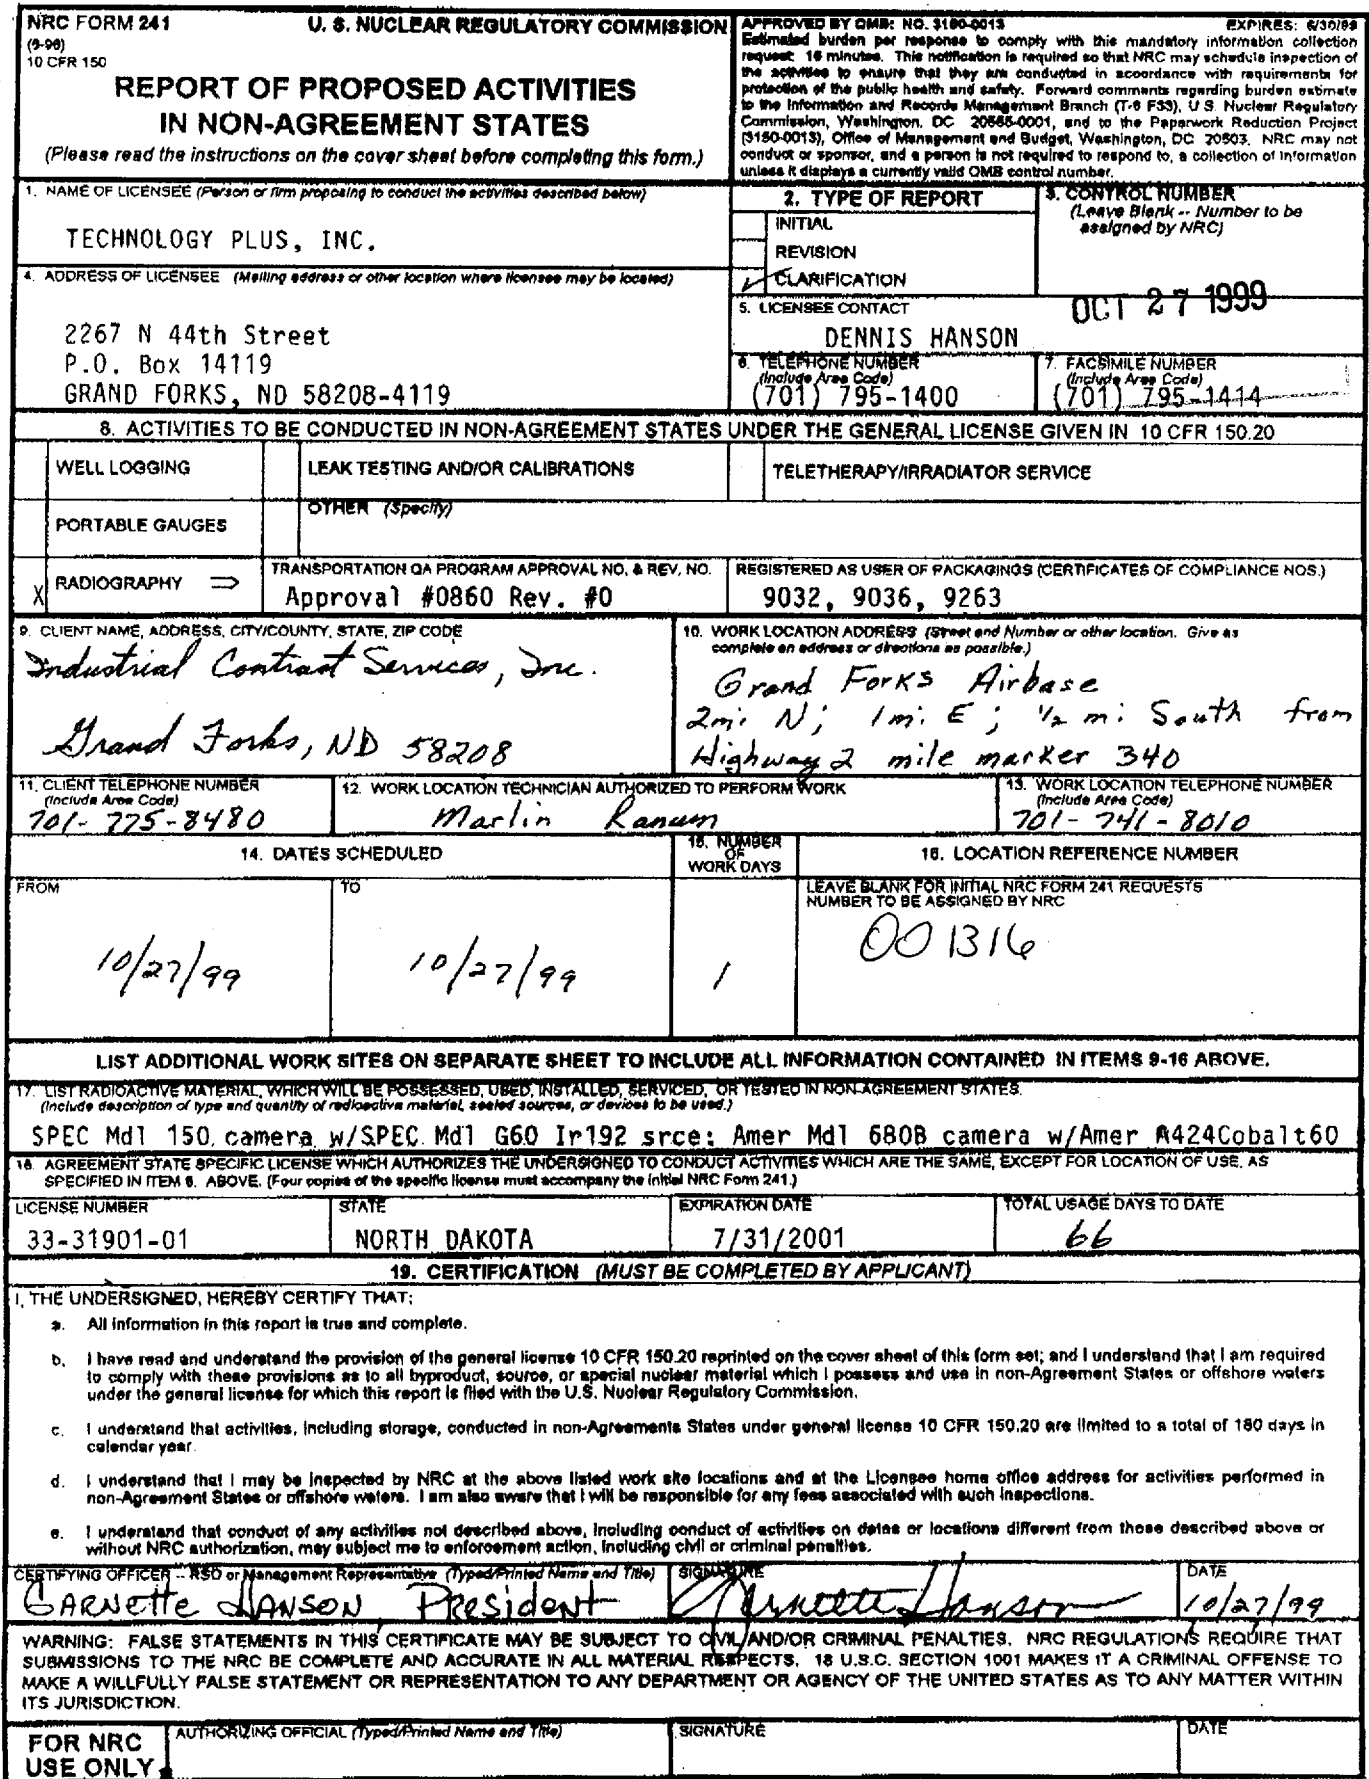 NRC FORM 241
(9-98)
10 CFR 150
U. S. NUCLEAR REGULATORY COMMISSION
REPORT OF PROPOSED ACTIVITIES
IN NON-AGREEMENT STATES
(Please read the instructions on the cover sheet before completing this form.)
APPROVED BY OMB: NO. 3150-0013 EXPIRES: 6/30/99
Estimated burden per response to comply with this mandatory information collection
request: 15 minutes. This notification is required so that NRC may schedule inspection of
the activities to ensure that they are conducted in accordance with requirements for
protection of the public health and safety. Forward comments regarding burden estimate
to the Information and Records Management Branch (T-6 F33), U S. Nuclear Regulatory
Commission, Washington, DC 20555-0001, and to the Paperwork Reduction Project
(3150-0013), Office of Management and Budget, Washington, DC 20503. NRC may not
conduct or sponsor, and a person is not required to respond to, a collection of information
unless it displays a currently valid OMB control number.
1. NAME OF LICENSEE (Person or firm proposing to conduct the activities described below)
TECHNOLOGY PLUS, INC.
2. TYPE OF REPORT
INITIAL
REVISION
CLARIFICATION
3. CONTROL NUMBER
(Leave Blank -- Number to be
assigned by NRC)
OCT 27 1999
4. ADDRESS OF LICENSEE (Mailing address or other location where licensee may be located)
2267 N 44th Street
P.O. Box 14119
GRAND FORKS, ND 58208-4119
5. LICENSEE CONTACT
DENNIS HANSON
6. TELEPHONE NUMBER
(Include Area Code)
(701) 795-1400
7. FACSIMILE NUMBER
(Include Area Code)
(701) 795-1414
8. ACTIVITIES TO BE CONDUCTED IN NON-AGREEMENT STATES UNDER THE GENERAL LICENSE GIVEN IN 10 CFR 150.20
WELL LOGGING
LEAK TESTING AND/OR CALIBRATIONS
TELETHERAPY/IRRADIATOR SERVICE
PORTABLE GAUGES
OTHER (Specify)
X RADIOGRAPHY ⇒
TRANSPORTATION QA PROGRAM APPROVAL NO. & REV. NO.
Approval #0860 Rev. #0
REGISTERED AS USER OF PACKAGINGS (CERTIFICATES OF COMPLIANCE NOS.)
9032, 9036, 9263
9. CLIENT NAME, ADDRESS, CITY/COUNTY, STATE, ZIP CODE
Industrial Contract Services, Inc.
Grand Forks, ND 58208
10. WORK LOCATION ADDRESS (Street and Number or other location. Give as
complete an address or directions as possible.)
Grand Forks Airbase
2mi N; 1mi E; 1/2 mi South from
Highway 2 mile marker 340
11. CLIENT TELEPHONE NUMBER
(Include Area Code)
701-775-8480
12. WORK LOCATION TECHNICIAN AUTHORIZED TO PERFORM WORK
Marlin Ranum
13. WORK LOCATION TELEPHONE NUMBER
(Include Area Code)
701-741-8010
14. DATES SCHEDULED
15. NUMBER
OF
WORK DAYS
16. LOCATION REFERENCE NUMBER
FROM
10/27/99
TO
10/27/99
1
LEAVE BLANK FOR INITIAL NRC FORM 241 REQUESTS
NUMBER TO BE ASSIGNED BY NRC
001316
LIST ADDITIONAL WORK SITES ON SEPARATE SHEET TO INCLUDE ALL INFORMATION CONTAINED IN ITEMS 9-16 ABOVE.
17. LIST RADIOACTIVE MATERIAL, WHICH WILL BE POSSESSED, USED, INSTALLED, SERVICED, OR TESTED IN NON-AGREEMENT STATES.
(Include description of type and quantity of radioactive material, sealed sources, or devices to be used.)
SPEC Mdl 150 camera w/SPEC Mdl G60 Ir192 srce; Amer Mdl 680B camera w/Amer A424Cobalt60
18. AGREEMENT STATE SPECIFIC LICENSE WHICH AUTHORIZES THE UNDERSIGNED TO CONDUCT ACTIVITIES WHICH ARE THE SAME, EXCEPT FOR LOCATION OF USE, AS
SPECIFIED IN ITEM 8. ABOVE. (Four copies of the specific license must accompany the initial NRC Form 241.)
LICENSE NUMBER
33-31901-01
STATE
NORTH DAKOTA
EXPIRATION DATE
7/31/2001
TOTAL USAGE DAYS TO DATE
66
19. CERTIFICATION (MUST BE COMPLETED BY APPLICANT)
I, THE UNDERSIGNED, HEREBY CERTIFY THAT:
a. All information in this report is true and complete.
b. I have read and understand the provision of the general license 10 CFR 150.20 reprinted on the cover sheet of this form set; and I understand that I am required
to comply with these provisions as to all byproduct, source, or special nuclear material which I possess and use in non-Agreement States or offshore waters
under the general license for which this report is filed with the U.S. Nuclear Regulatory Commission.
c. I understand that activities, including storage, conducted in non-Agreements States under general license 10 CFR 150.20 are limited to a total of 180 days in
calendar year.
d. I understand that I may be inspected by NRC at the above listed work site locations and at the Licensee home office address for activities performed in
non-Agreement States or offshore waters. I am also aware that I will be responsible for any fees associated with such inspections.
e. I understand that conduct of any activities not described above, including conduct of activities on dates or locations different from those described above or
without NRC authorization, may subject me to enforcement action, including civil or criminal penalties.
CERTIFYING OFFICER -- RSO or Management Representative (Typed/Printed Name and Title)
GARNEttE HANSON, President
SIGNATURE
Garnette Hanson
DATE
10/27/99
WARNING: FALSE STATEMENTS IN THIS CERTIFICATE MAY BE SUBJECT TO CIVIL AND/OR CRIMINAL PENALTIES. NRC REGULATIONS REQUIRE THAT
SUBMISSIONS TO THE NRC BE COMPLETE AND ACCURATE IN ALL MATERIAL RESPECTS. 18 U.S.C. SECTION 1001 MAKES IT A CRIMINAL OFFENSE TO
MAKE A WILLFULLY FALSE STATEMENT OR REPRESENTATION TO ANY DEPARTMENT OR AGENCY OF THE UNITED STATES AS TO ANY MATTER WITHIN
ITS JURISDICTION.
FOR NRC
USE ONLY
AUTHORIZING OFFICIAL (Typed/Printed Name and Title)
SIGNATURE
DATE